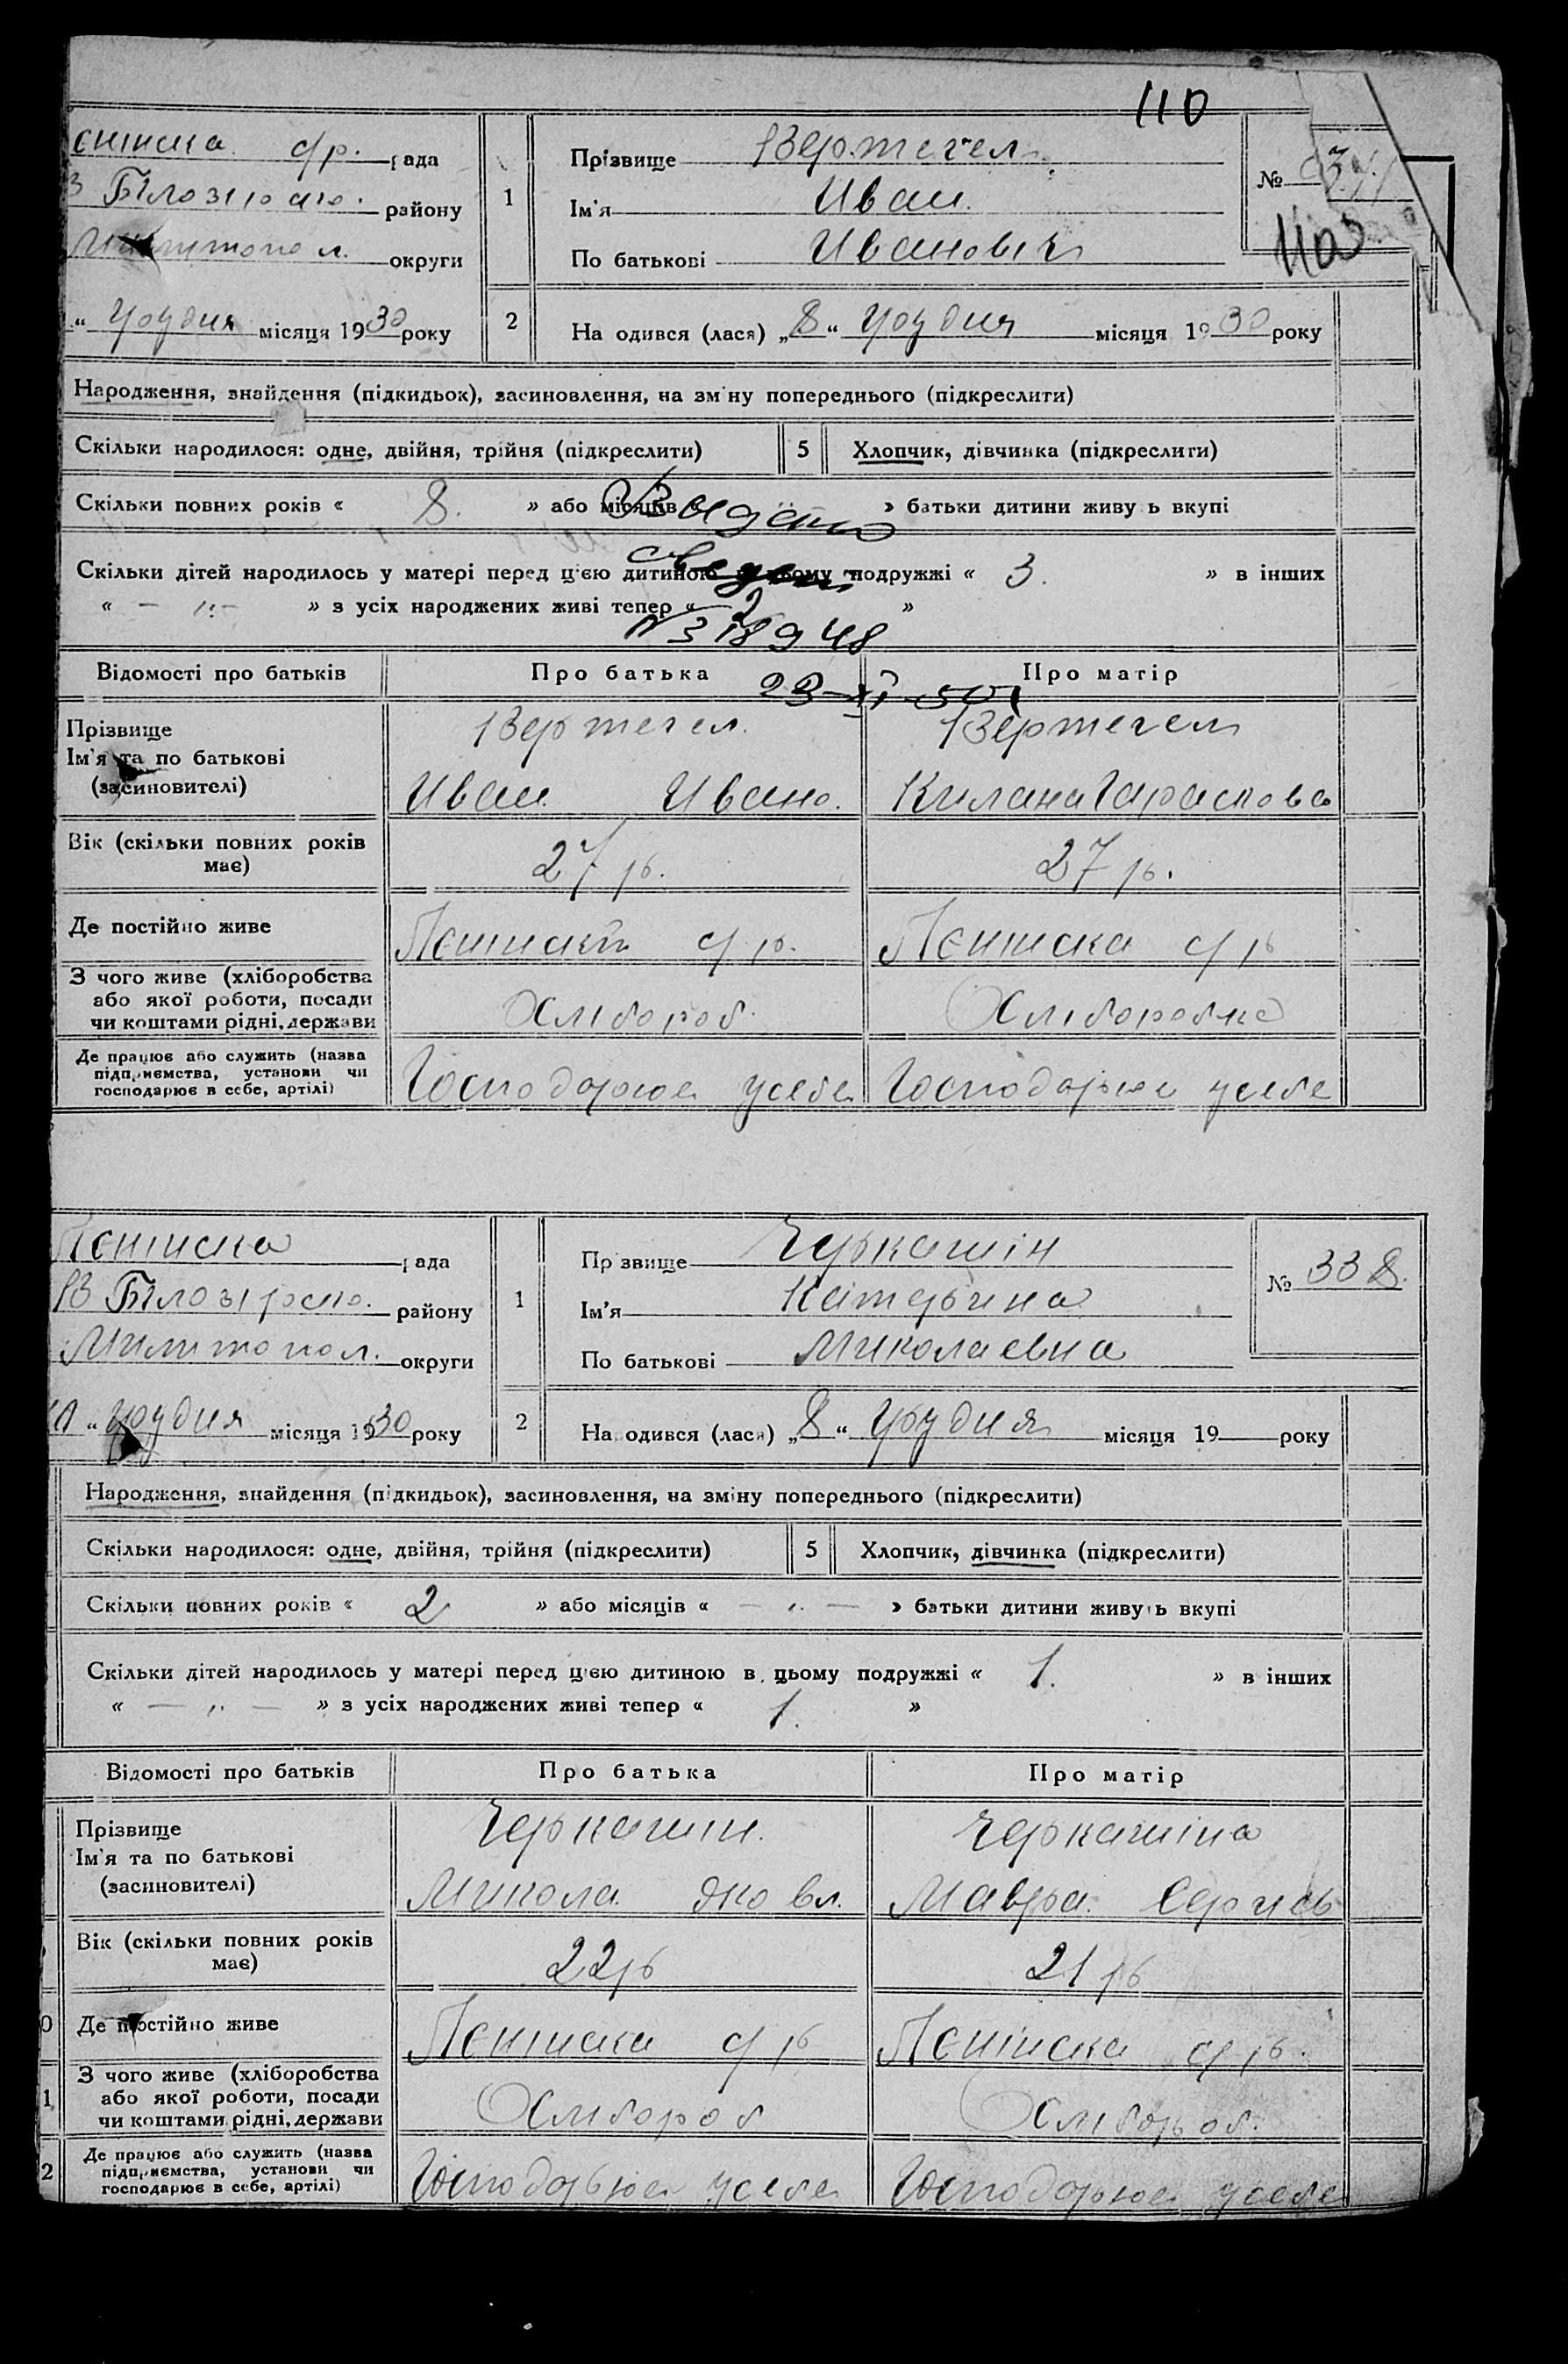 110
с/р. рада
Прізвище Вертегел
№
району
1
Ім'я Иван
1103
округи
По батькові Иванович
" Грудня місяця 1930 року
2
На одився (лася) „8" Грудня місяця 1930 року
Народження, знайдення (підкидьок), засиновлення, на зміну попереднього (підкреслити)
Скільки народилося: одне, двійня, трійня (підкреслити) 5 Хлопчик, дівчинка (підкреслити)
Скільки повних років « 8. » або місяців « » батьки дитини живуть вкупі
Выдано
Скільки дітей народилось у матері перед цією дитиною в цьому подружжі « 3. » в інших
« — „ — » з усіх народжених живі тепер « 2 »
свед.
N 318948
23-XI-50
Відомості про батьків Про батька Про матір
Прізвище Вертегел. Вертегел
Ім'я та по батькові
(засиновителі) Иван Ивано. Тарасова
Вік (скільки повних років має) 27 р. 27 р.
Де постійно живе с/р. Ленінска с/р
З чого живе (хліборобства
або якої роботи, посади
чи коштами рідні, держави Хлібороб. Хліборобка
Де працює або служить (назва
підприємства, установи чи
господарює в себе, артілі) Господарює у себе Господарює у себе
Ленінска рада
Прізвище Черкашін
№ 338.
району
1
Ім'я Катерина
Милитопол. округи
По батькові Миколаевна
" Грудня місяця 1930 року
2
Народився (лася) „8" Грудня місяця 19 року
Народження, знайдення (підкидьок), засиновлення, на зміну попереднього (підкреслити)
Скільки народилося: одне, двійня, трійня (підкреслити) 5 Хлопчик, дівчинка (підкреслити)
Скільки повних років « 2 » або місяців « — „ — » батьки дитини живуть вкупі
Скільки дітей народилось у матері перед цією дитиною в цьому подружжі « 1. » в інших
« — „ — » з усіх народжених живі тепер « 1. »
Відомості про батьків Про батька Про матір
Прізвище Черкашин. Черкашіна
Ім'я та по батькові
(засиновителі) Микола Яковл. Мавра
Вік (скільки повних років має) 22 р 21 р
Де постійно живе Ленінска с/р Ленінска с/р.
З чого живе (хліборобства
або якої роботи, посади
чи коштами рідні, держави Хлібороб Хлібороб.
Де працює або служить (назва
підприємства, установи чи
господарює в себе, артілі) Господарює у себе Господарює у себе